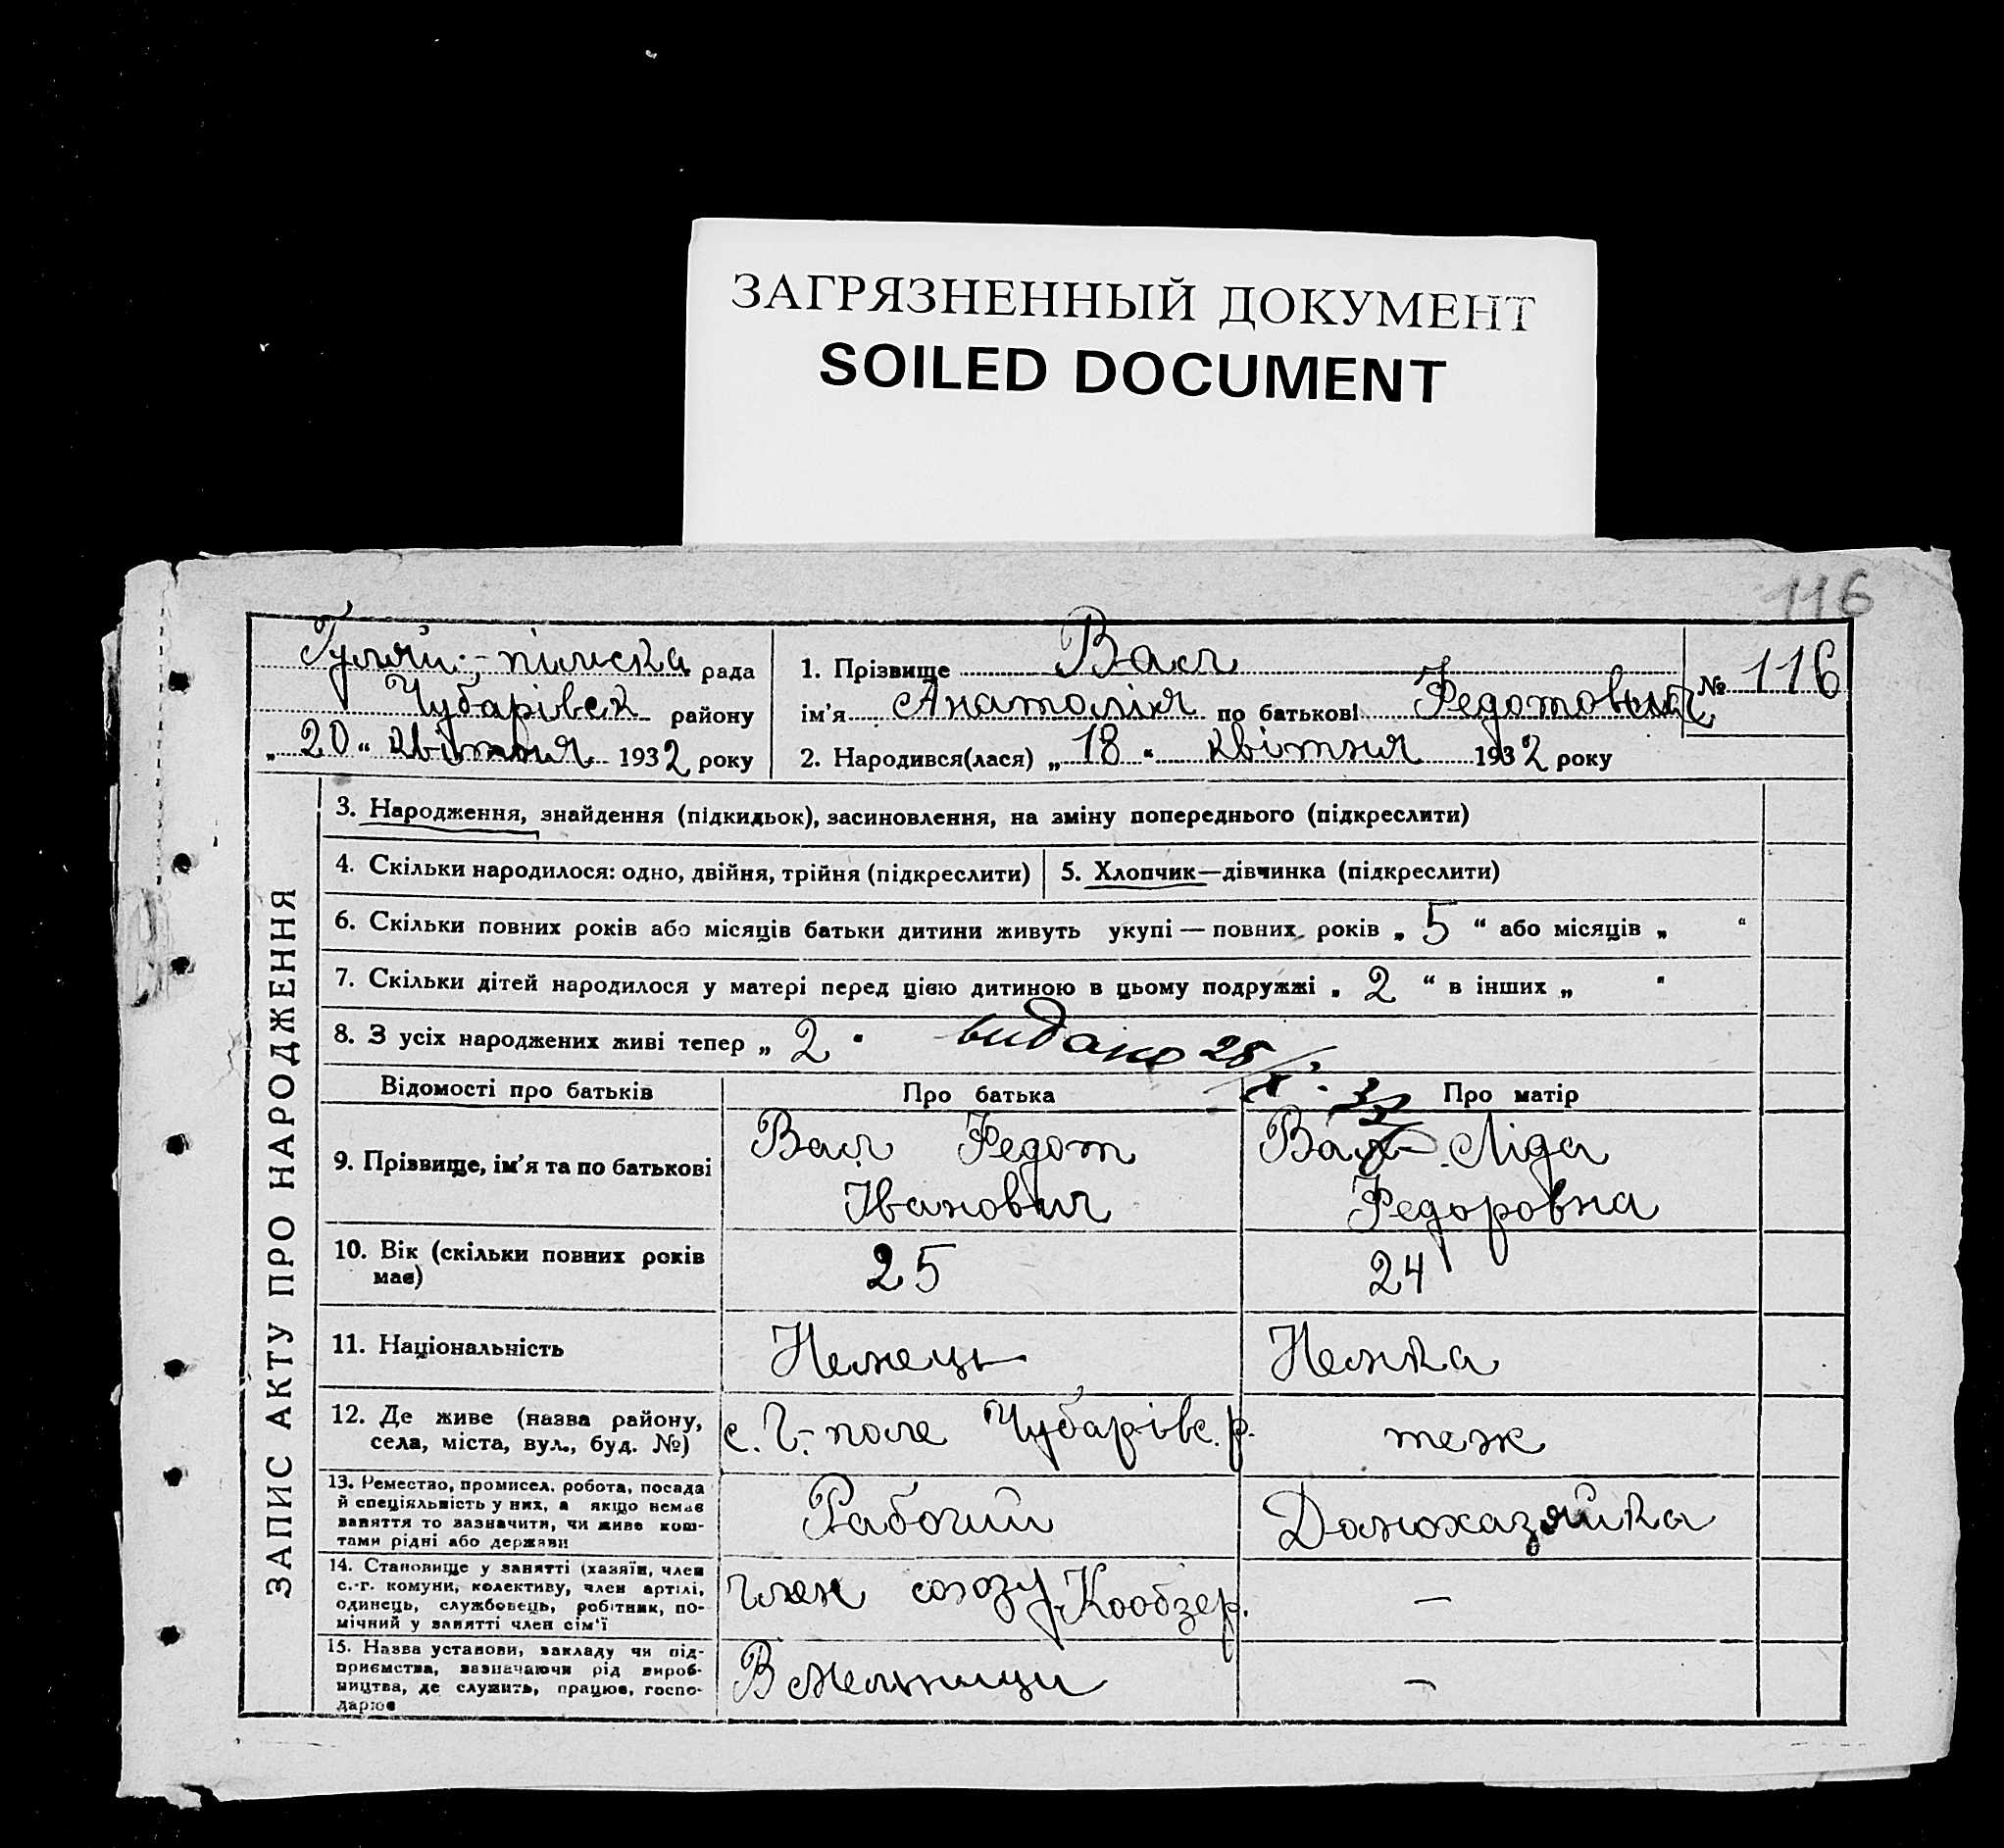 ЗАГРЯЗНЕННЫЙ ДОКУМЕНТ
SOILED DOCUMENT
116
Гуляй-пільска рада
Чубарівск району
„ 20 “ квітня 1932 року
1. Прізвище Вал
ім’я Анатолія по батькові Федотович
№ 116
2. Народився(лася) „ 18 “ квітня 1932 року
ЗАПИС АКТУ ПРО НАРОДЖЕННЯ
3. Народження, знайдення (підкидьок), засиновлення, на зміну попереднього (підкреслити)
4. Скільки народилося: одно, двійня, трійня (підкреслити)
5. Хлопчик—дівчинка (підкреслити)
6. Скільки повних років або місяців батьки дитини живуть укупі — повних років „ 5 “ або місяців „ “
7. Скільки дітей народилося у матері перед цією дитиною в цьому подружжі „ 2 “ в інших „ “
8. З усіх народжених живі тепер „ 2 “ видано 25/X
Відомості про батьків
Про батька
Про матір
9. Прізвище, ім’я та по батькові
Федот
Іванович
Ліда
Федоровна
10. Вік (скільки повних років
має)
25
24
11. Національність
Немець
Немка
12. Де живе (назва району,
села, міста, вул., буд. №)
с. Г-поле Чубарівс. р.
теж
13. Ремество, промисел, робота, посада
й спеціяльність у них, а якщо немає
заняття то зазначити, чи живе кош-
тами рідні або держави
Рабочий
Домохазяйка
14. Становище у занятті (хазяїн, член
с.-г. комуни, колективу, член артілі,
одинець, службовець, робітник, по-
мічний у занятті член сім’ї
член союзу Кообзер.
—
15. Назва установи, закладу чи під-
приємства, зазначаючи рід вироб-
ництва, де служить, працює, госпо-
дарює
В Мельници
—